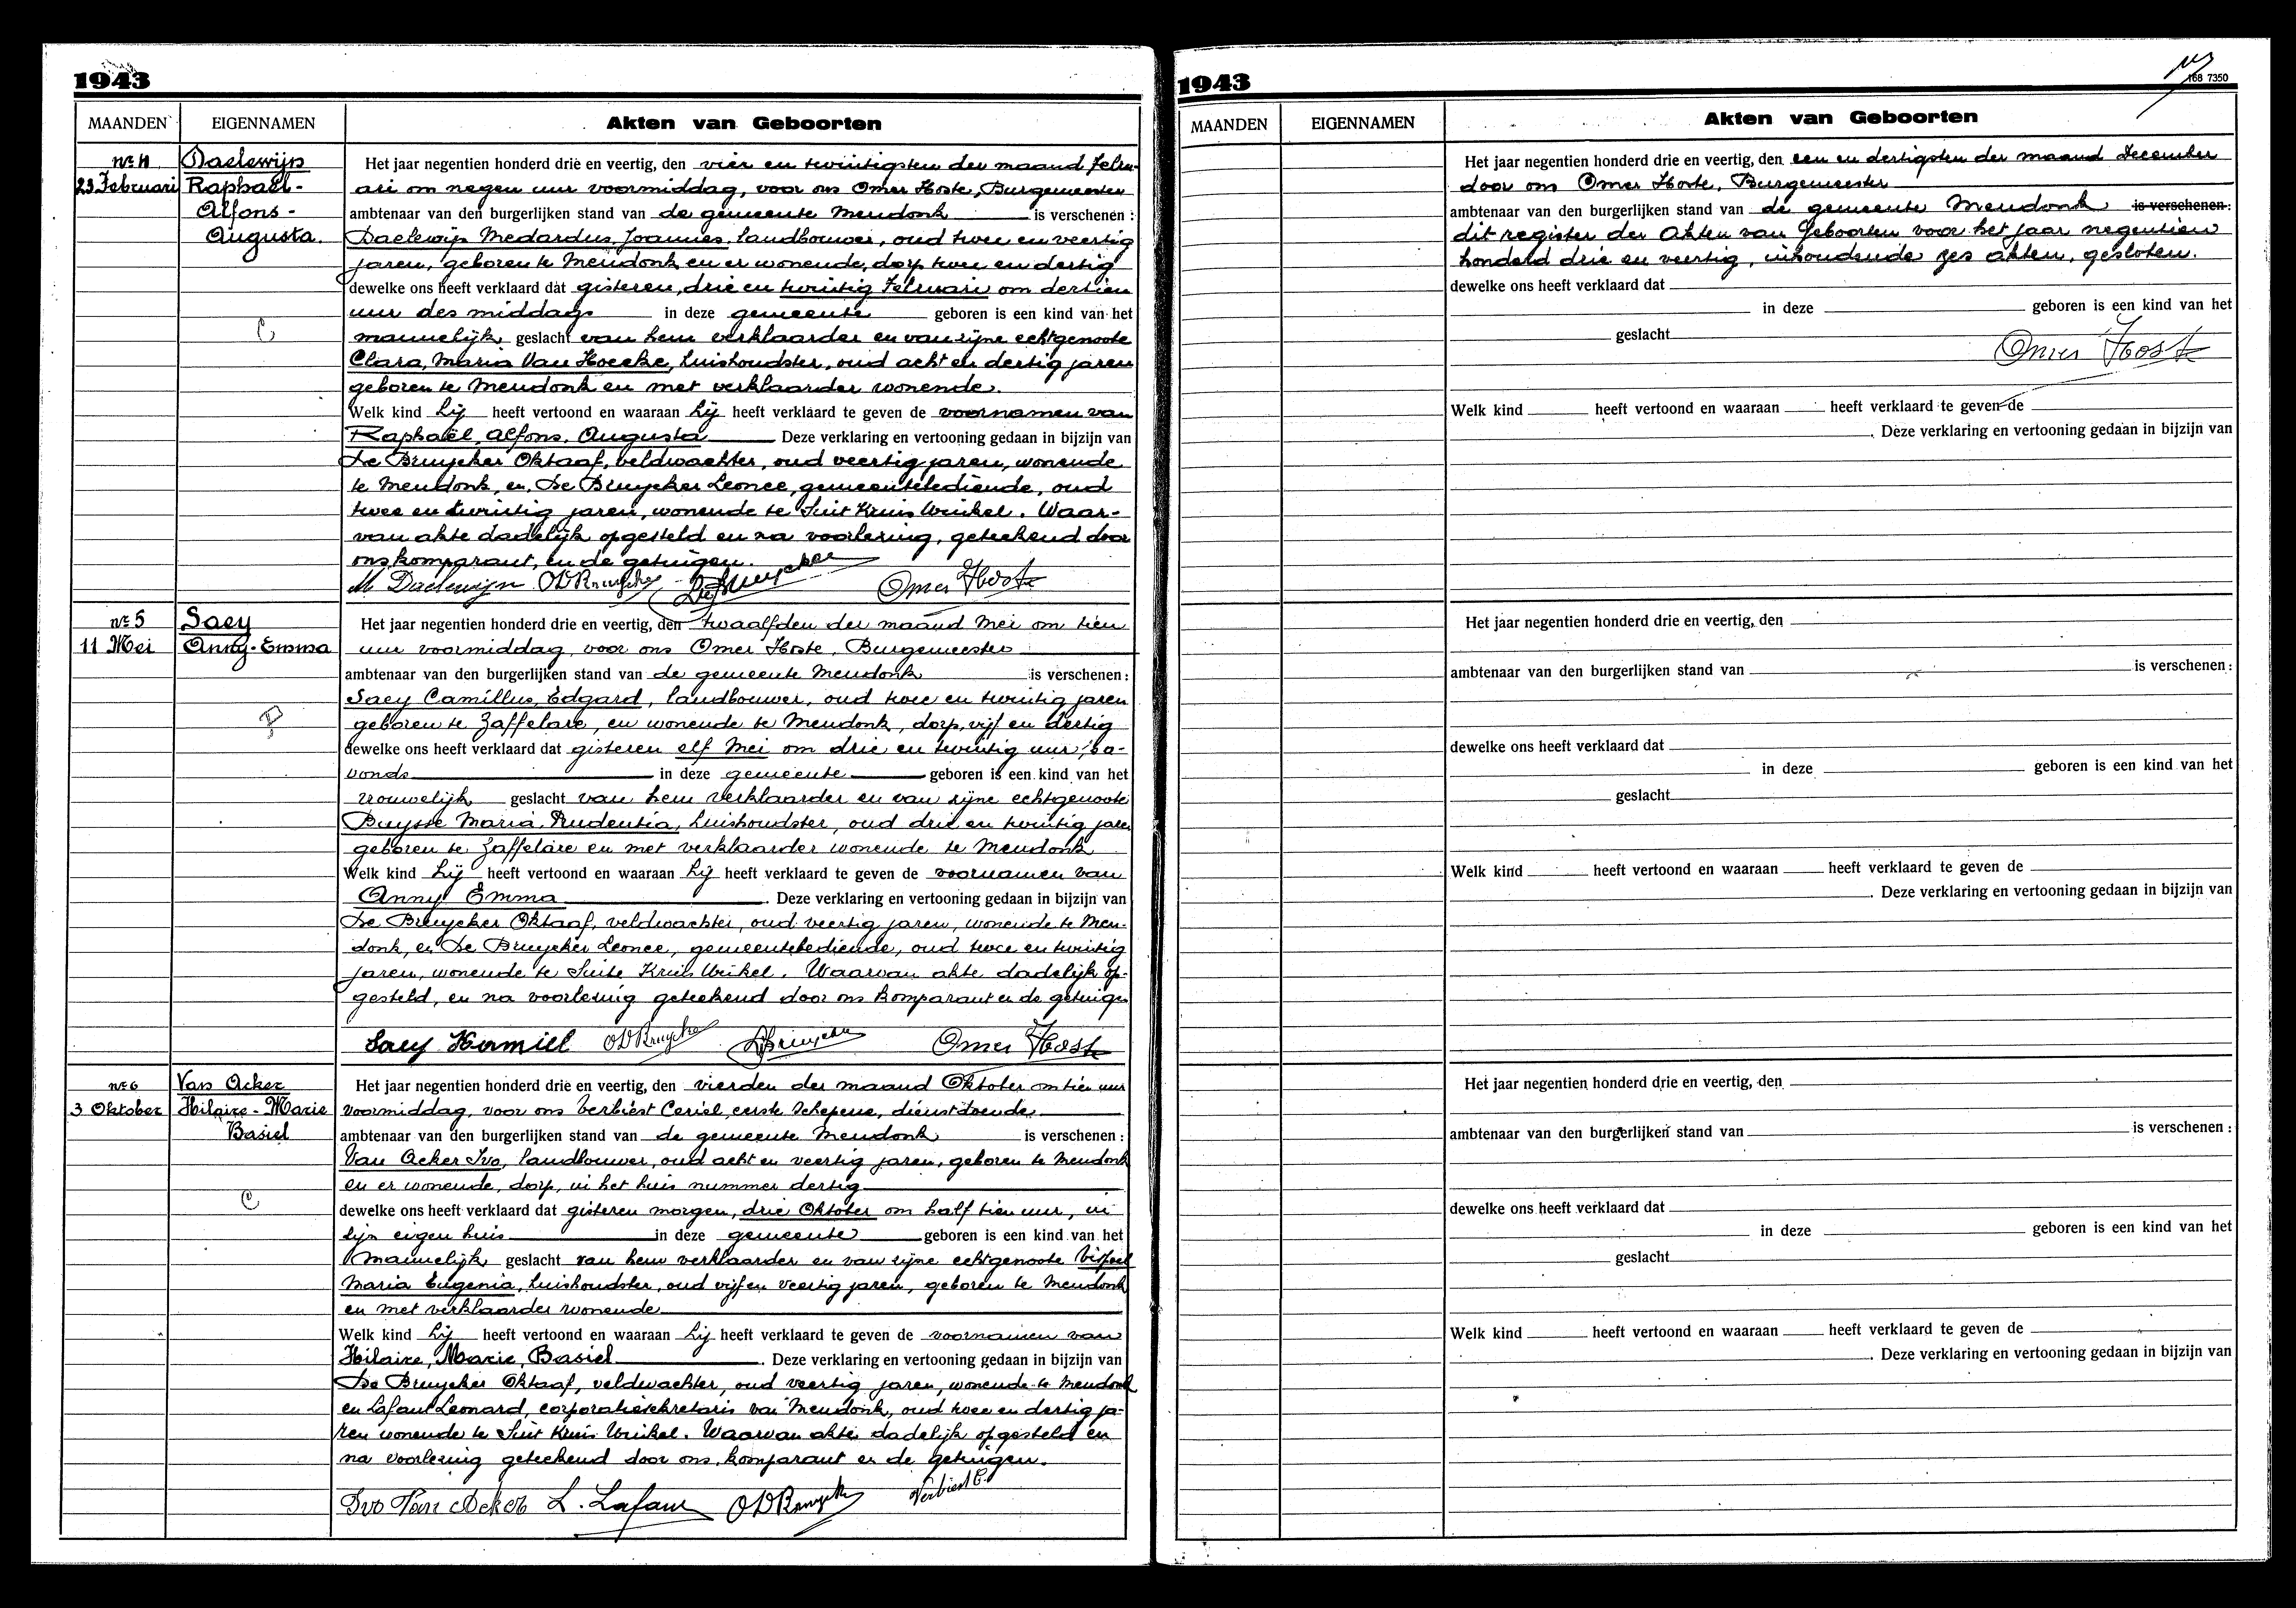 1943
MAANDEN EIGENNAMEN Akten van Geboorten
nr 4 Daelewijn
23 Februari Raphaël-
Alfons-
Augusta.
Het jaar negentien honderd drie en veertig, den vier en twintigsten der maand Febru-
ari om negen uur voormiddag, voor ons Omer Hoste, Burgemeester
ambtenaar van den burgerlijken stand van de gemeente Mendonk is verschenen :
Daelewijn Medardus, Joannes, landbouwer, oud twee en veertig
jaren, geboren te Mendonk en er wonende, dorp twee en dertig
dewelke ons heeft verklaard dat gisteren, drie en twintig Februari om dertien
uur des middags in deze gemeente geboren is een kind van het
mannelijk geslacht van hem verklaarder en van zijne echtgenoote
Clara, Maria Van Hoecke, huishoudster, oud acht en dertig jaren
geboren te Mendonk en met verklaarder wonende.
Welk kind hij heeft vertoond en waaraan hij heeft verklaard te geven de voornamen van
Raphaël, Alfons, Augusta Deze verklaring en vertooning gedaan in bijzijn van
De Bruycker Oktaaf, veldwachter, oud veertig jaren, wonende
te Mendonk, en De Bruycker Leonce, gemeentebediende, oud
twee en twintig jaren, wonende te Sint Kruis Winkel. Waar-
van akte dadelijk opgesteld en na voorlezing, geteekend door
ons, komparant, en de getuigen.
M Daelewijn ODBruycker LDeBruycker Omer Hoste
nr 5 Saey
11 Mei Anny-Emma
Het jaar negentien honderd drie en veertig, den twaalfden der maand Mei om tien
uur voormiddag, voor ons Omer Hoste, Burgemeester
ambtenaar van den burgerlijken stand van de gemeente Mendonk is verschenen :
Saey Camillus, Edgard, landbouwer, oud twee en twintig jaren
geboren te Zaffelare, en wonende te Mendonk, dorp, vijf en dertig
dewelke ons heeft verklaard dat gisteren elf Mei om drie en twintig uur, 's a-
vonds in deze gemeente geboren is een kind van het
vrouwelijk geslacht van hem verklaarder en van zijne echtgenoote
Buysse Maria, Prudentia, huishoudster, oud drie en twintig jaren
geboren te Zaffelare en met verklaarder wonende te Mendonk
Welk kind hij heeft vertoond en waaraan hij heeft verklaard te geven de voornamen van
Anny Emma . Deze verklaring en vertooning gedaan in bijzijn van
De Bruycker Oktaaf, veldwachter, oud veertig jaren, wonende te Men-
donk, en De Bruycker Leonce, gemeentebediende, oud twee en twintig
jaren, wonende te Sinte Kruis Winkel. Waarvan akte dadelijk op-
gesteld, en na voorlezing geteekend door ons komparant en de getuigen
Saey Kamiel ODBruycker LDBruycker Omer Hoste
nr 6 Van Acker
3 Oktober Hilaire-Marie
Basiel
Het jaar negentien honderd drie en veertig, den vierden der maand Oktober om tien uur
voormiddag, voor ons Verbiest Ceriel, eerste Schepene, dienstdoende
ambtenaar van den burgerlijken stand van de gemeente Mendonk is verschenen :
Van Acker Ivo, landbouwer, oud acht en veertig jaren, geboren te Mendonk
en er wonende, dorp, in het huis nummer dertig
dewelke ons heeft verklaard dat gisteren morgen, drie Oktober om half tien uur, in
zijn eigen huis in deze gemeente geboren is een kind van het
mannelijk geslacht van hem verklaarder en van zijne echtgenoote
Maria Eugenia, huishoudster, oud vijf en veertig jaren, geboren te Mendonk
en met verklaarder wonende
Welk kind hij heeft vertoond en waaraan hij heeft verklaard te geven de voornamen van
Hilaire, Marie, Basiel . Deze verklaring en vertooning gedaan in bijzijn van
De Bruycker Oktaaf, veldwachter, oud veertig jaren, wonende te Mendonk
en Lafaut Leonard, corporatiesekretaris van Mendonk, oud twee en dertig ja-
ren wonende te Sint Kruis Winkel. Waarvan akte dadelijk opgesteld en
na voorlezing geteekend door ons, komparant en de getuigen.
Ivo Van Acker L. Lafaut ODBruycker Verbiest C.
1943
168 7350
MAANDEN EIGENNAMEN Akten van Geboorten
Het jaar negentien honderd drie en veertig, den een en dertigsten der maand December
door ons Omer Hoste, Burgemeester
ambtenaar van den burgerlijken stand van de gemeente Mendonk is verschenen:
dit register der Akten van Geboorten voor het jaar negentien
honderd drie en veertig, inhoudende zes akten, gesloten.
dewelke ons heeft verklaard dat
in deze geboren is een kind van het
geslacht
Omer Hoste
Welk kind heeft vertoond en waaraan heeft verklaard te geven de
. Deze verklaring en vertooning gedaan in bijzijn van
Het jaar negentien honderd drie en veertig, den
ambtenaar van den burgerlijken stand van is verschenen :
dewelke ons heeft verklaard dat
in deze geboren is een kind van het
geslacht
Welk kind heeft vertoond en waaraan heeft verklaard te geven de
. Deze verklaring en vertooning gedaan in bijzijn van
Het jaar negentien honderd drie en veertig, den
ambtenaar van den burgerlijken stand van is verschenen :
dewelke ons heeft verklaard dat
in deze geboren is een kind van het
geslacht
Welk kind heeft vertoond en waaraan heeft verklaard te geven de
. Deze verklaring en vertooning gedaan in bijzijn van